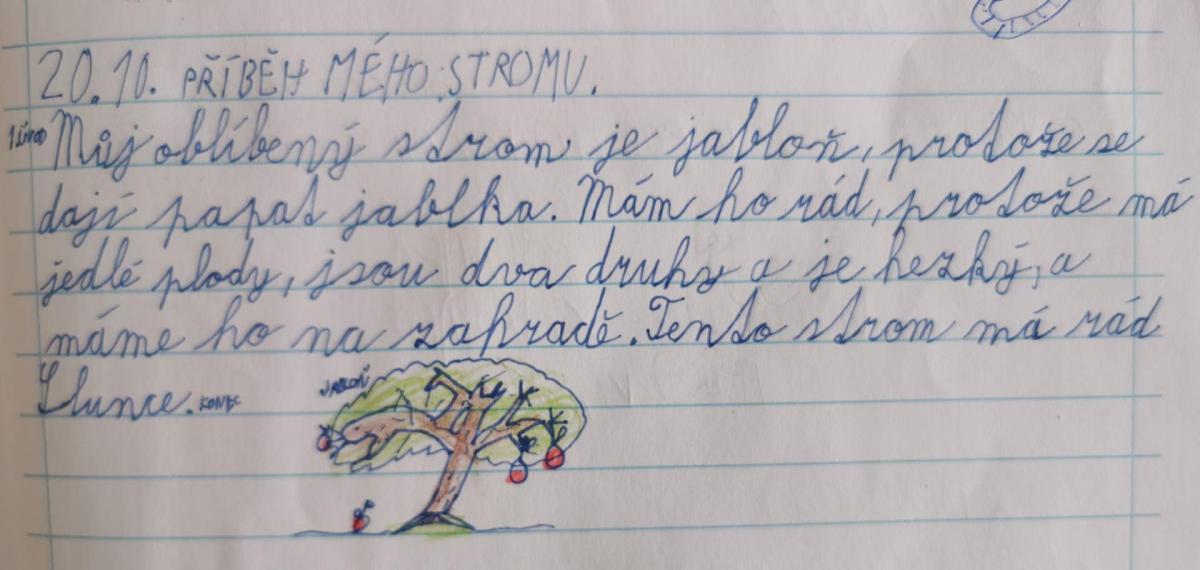 20.10. PŘÍBĚH MÉHO STROMU.
1 úvod Můj oblíbený strom je jabloň, protože se
dají papat jablka. Mám ho rád, protože má
jedlé plody, jsou dva druhy a je hezký, a
máme ho na zahradě. Tento strom má rád
Slunce. KONEC
JABLOŇ